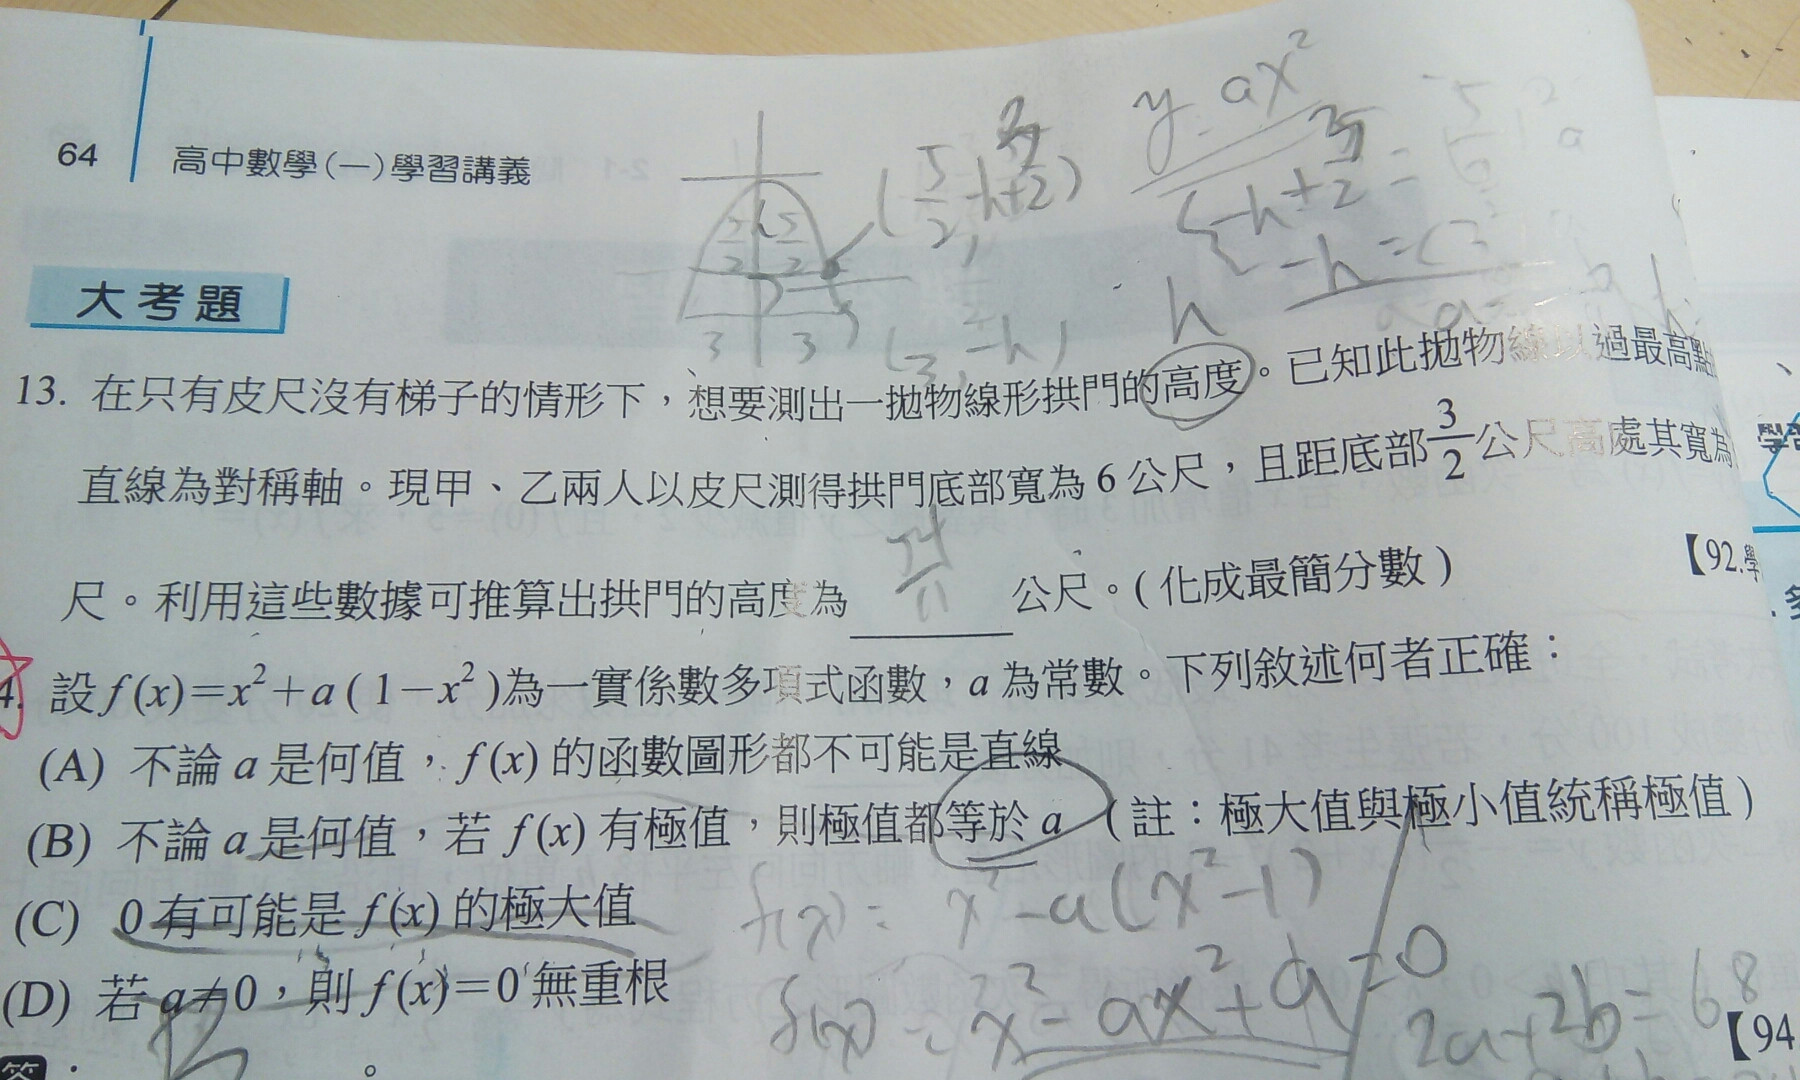 64 高中數學(一)學習講義
大考題
13. 在只有皮尺沒有梯子的情形下，想要測出一拋物線形拱門的高度。已知此拋物線以過最高點
直線為對稱軸。現甲、乙兩人以皮尺測得拱門底部寬為6公尺，且距底部3/2公尺高處其寬為
尺。利用這些數據可推算出拱門的高度為 公尺。(化成最簡分數)
【92.學
4. 設f(x)=x²+a(1−x²)為一實係數多項式函數，a為常數。下列敘述何者正確：
(A) 不論a是何值，f(x)的函數圖形都不可能是直線
(B) 不論a是何值，若f(x)有極值，則極值都等於a (註：極大值與極小值統稱極值)
(C) 0有可能是f(x)的極大值
(D) 若a≠0，則f(x)=0無重根
【94
答：
y=ax²
3 3
(3,-h)
h
f(x)= x²-a(x²-1)
f(x)= x²-ax²+a=0
2a+2b=68